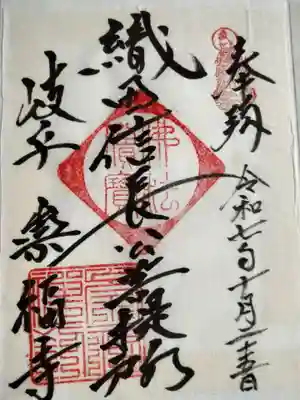 奉拝
令和七年十月二十一日
織田信長公菩提所
岐阜 崇福寺
佛法僧寳